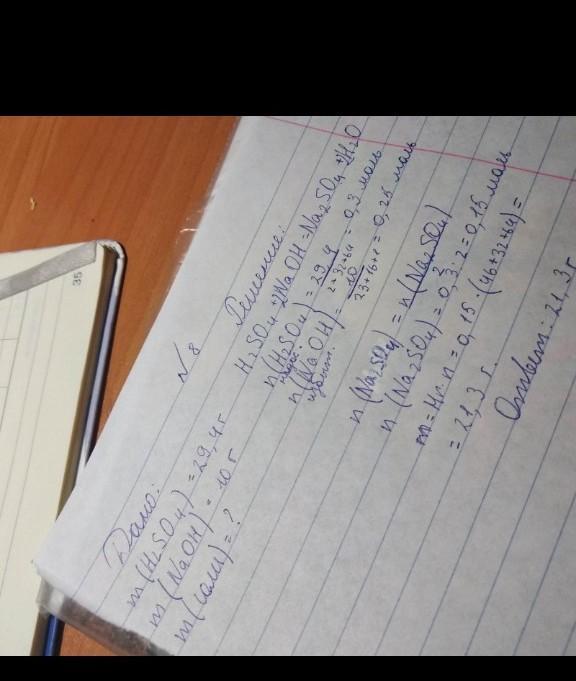 35
№ 8
Дано:
m(H2SO4) = 29,4 г
m(NaOH) = 10 г
m(соли) = ?
Решение:
H2SO4 + 2NaOH = Na2SO4 + 2H2O
n(H2SO4) = 29,4 / 2+32+64 = 0,3 моль
n(NaOH) = 10 / 23+16+1 = 0,25 моль
n(Na2SO4) = n(Na2SO4) / 2
n(Na2SO4) = 0,3 : 2 = 0,15 моль
m = Mr · n = 0,15 · (46+32+64) =
= 21,3 г.
Ответ: 21,3 г